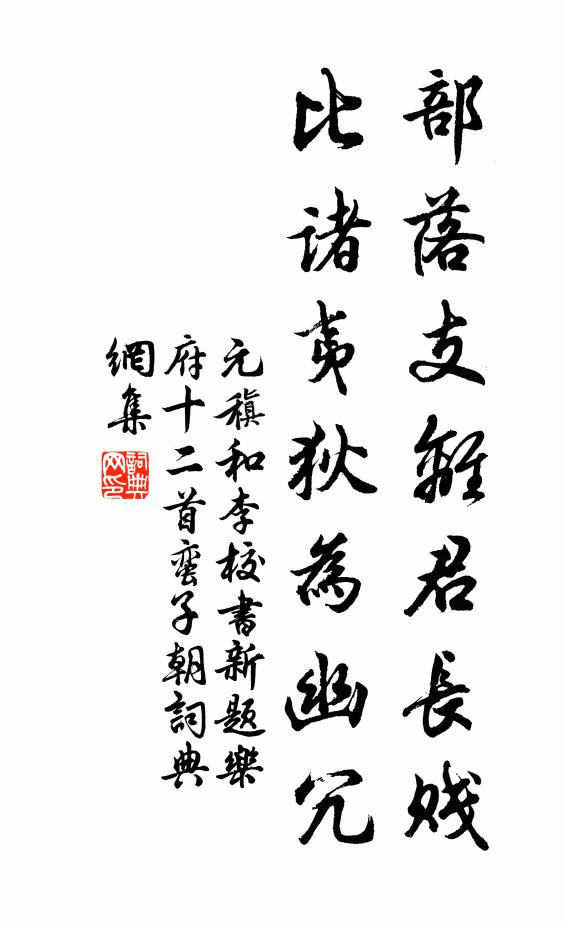 部落支離君長贱
比諸夷狄為幽冗
元稹和李校書新題樂
府十二首蛮子朝詞典
網集
詞典
网印